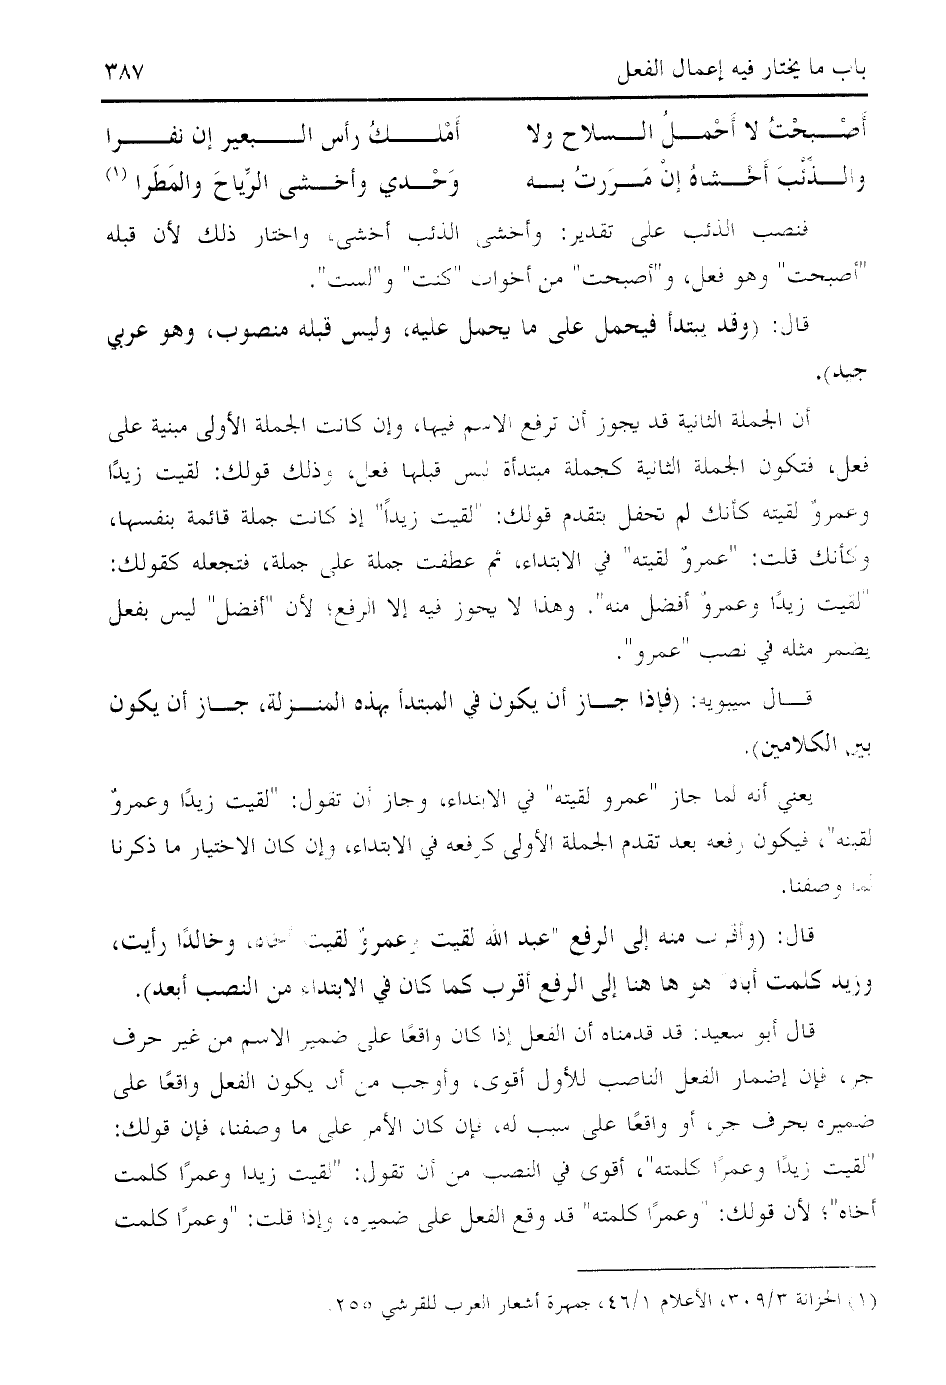 باب ما يختار فيه إعمال الفعل ٣٨٧
أَصْـبَحْتُ لا أَحْمـلُ الـسلاح ولا أَمْلـكُ رأس الـبعير إن نفـرا
والـذِّئْبَ أَخْـشاهُ إنْ مَـرَرتُ بـه وَحْـدي وأخـشى الرِّياحَ والمَطَرا (١)
فنصب الذئب على تقدير: وأخشى الذئب أخشى، واختار ذلك لأن قبله
"أصبحت" وهو فعل، و"أصبحت" من أخوات "كنت" و"لست".
قال: (وقد يبتدأ فيحمل على ما يحمل عليه، وليس قبله منصوب، وهو عربي
جيد).
أن الجملة الثانية قد يجوز أن ترفع الاسم فيها، وإن كانت الجملة الأولى مبنية على
فعل، فتكون الجملة الثانية كجملة مبتدأة ليس قبلها فعل، وذلك قولك: لقيت زيدًا
وعمروٌ لقيته كأنك لم تحفل بتقدم قولك: "لقيت زيداً" إذ كانت جملة قائمة بنفسها،
وكأنك قلت: "عمروٌ لقيته" في الابتداء، ثم عطفت جملة على جملة، فتجعله كقولك:
"لقيت زيدًا وعمروٌ أفضل منه". وهذا لا يجوز فيه إلا الرفع؛ لأن "أفضل" ليس بفعل
يضمر مثله في نصب "عمرو".
قـال سيبويه: (فإذا جـاز أن يكون في المبتدأ بهذه المنـزلة، جـاز أن يكون
بين الكلامين).
يعني أنه لما جاز "عمرو لقيته" في الابتداء، وجاز أن تقول: "لقيت زيدًا وعمروٌ
لقيته"، فيكون رفعه بعد تقدم الجملة الأولى كرفعه في الابتداء، وإن كان الاختيار ما ذكرنا
لما وصفنا.
قال: (وأقرب منه إلى الرفع "عبد الله لقيت وعمروٌ لقيت أخاه، وخالدًا رأيت،
وزيد كلمت أباه هو ها هنا إلى الرفع أقرب كما كان في الابتداء من النصب أبعد).
قال أبو سعيد: قد قدمناه أن الفعل إذا كان واقعًا على ضمير الاسم من غير حرف
جر، فإن إضمار الفعل الناصب للأول أقوى، وأوجب من أن يكون الفعل واقعًا على
ضميره بحرف جر، أو واقعًا على سبب له، فإن كان الأمر على ما وصفنا، فإن قولك:
"لقيت زيدًا وعمرًا كلمته"، أقوى في النصب من أن تقول: "لقيت زيدا وعمرًا كلمت
أخاه"؛ لأن قولك: "وعمرًا كلمته" قد وقع الفعل على ضميره، وإذا قلت: "وعمرًا كلمت
(١) الخزانة ٣٠٩/٣، الأعلام ٤٦/١، جمهرة أشعار العرب للقرشي ٢٥٥.